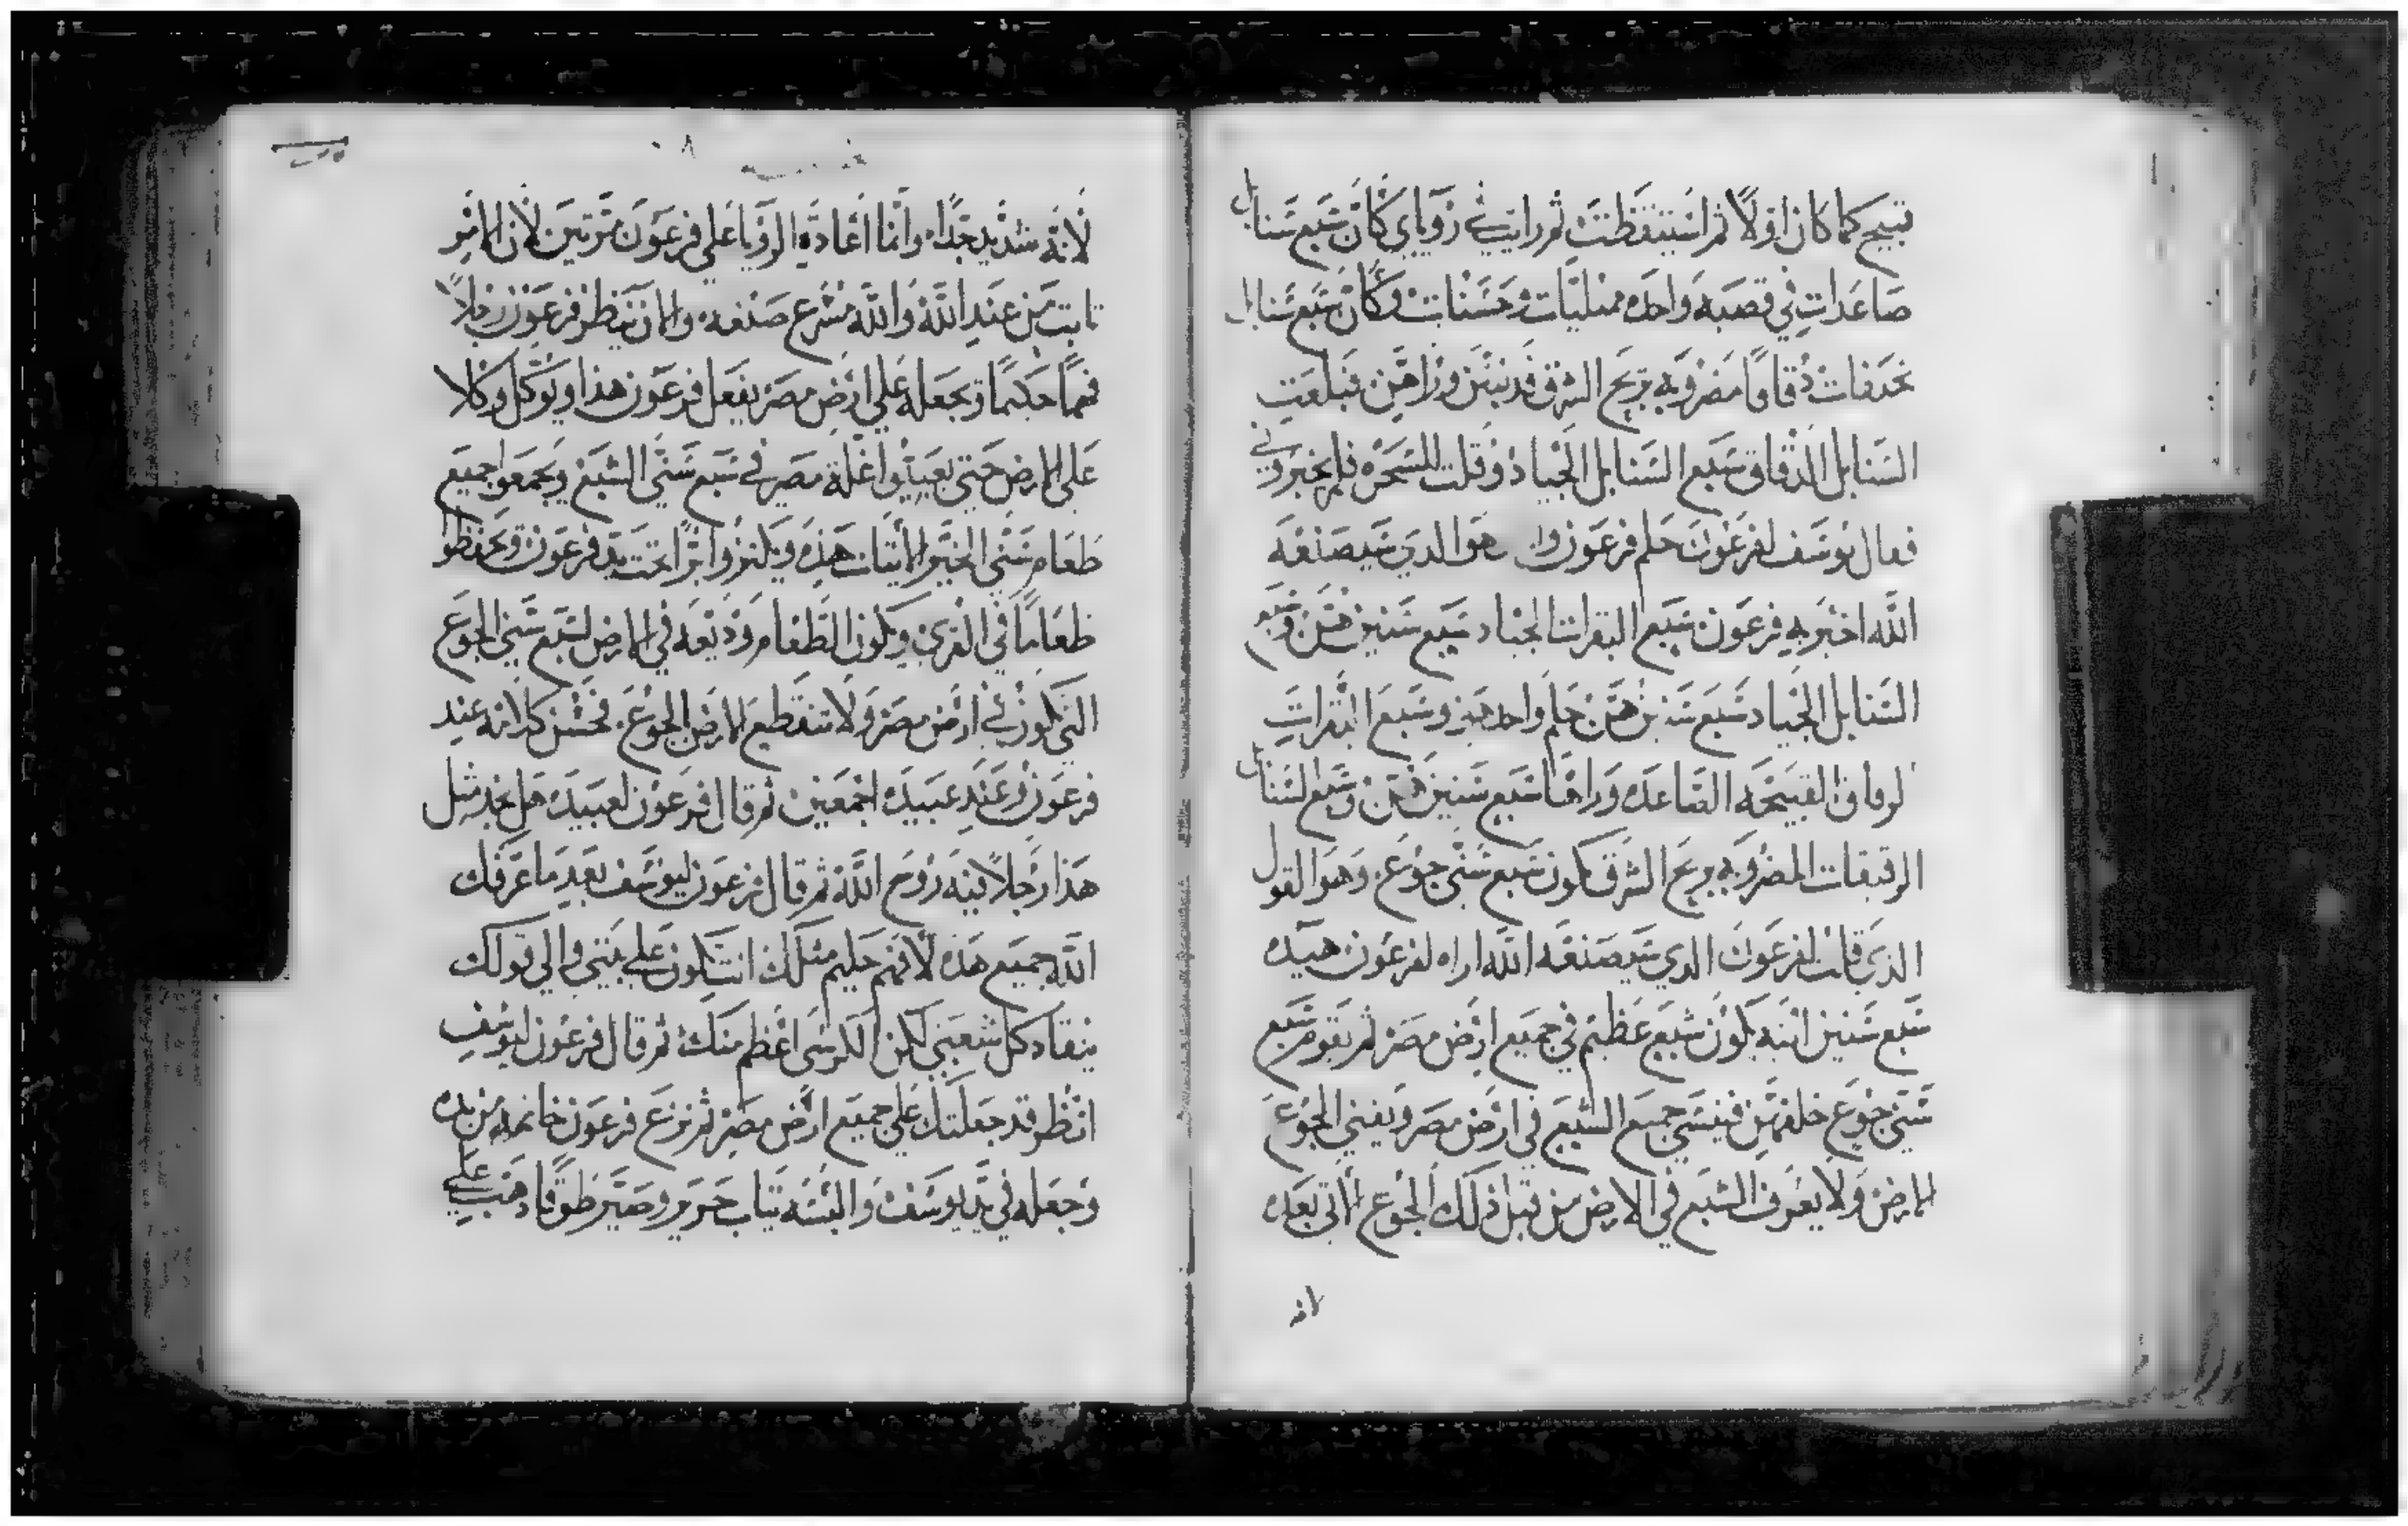 قبيح كما كان اولا ثم استيقظت ثم رايت في روياي كان سبع سنابل
صاعدات في قصبه واحده ممتليات وحسنات وكان سبع سنابل
نحفات دقاقا مضروبه بريح الشرق قد نبتن وراهن فبلعت
السنابل الدقاق سبع السنابل الجياد وقلت للسحره فلم يخبروني
فقال يوسف لفرعون حلم فرعون هو الدي سيصنعه
الله اخبر به فرعون سبع البقرات الجياد سبع سنين هن وسبع
السنابل الجياد سبع سنين هن حلم واحد هو وسبع البقرات
الرقاق القبيحه الصاعده وراها سبع سنين هن وسبع السنابل
الرقيقات المضروبه بريح الشرق تكون سبع سني جوع وهو القول
الدي قلت لفرعون الدي سيصنعه الله اراه لفرعون هيده
سبع سنين اتيه يكون شبع عظيم في جميع ارض مصر ثم يقوم سبع
سني جوع خلفهن فينسي جميع الشبع في ارض مصر ويفني الجوع
الارض ولا يعرف الشبع في الارض من قبل ذلك الجوع الاتي بعده
لانه
لانه شديد جدا وانما اعادة الرويا علي فرعون مرتين لان الامر
تابت من عند الله والله مسرع صنعه والان ينظر فرعون رجلا
فهما حكيما ويجعله علي ارض مصر يفعل فرعون هذا ويوكل وكلا
علي الارض حتي يعبيوا غلة مصر في سبع سني الشبع ويجمعوا جميع
طعام سني الخير الاتيات هذه ويكنزوا برا تحت يد فرعون ويحفظوا
طعاما في القري ويكون الطعام وديعه في الارض لسبع سني الجوع
التي تكون في ارض مصر ولا تنقطع الارض الجوع فحسن كلامه عند
فرعون وعند عبيده اجمعين ثم قال فرعون لعبيده هل نجد مثل
هذا رجلا فيه روح الله ثم قال فرعون ليوسف بعد ما عرفك
الله جميع هذه لا فهم حليم مثلك انت تكون علي بيتي والي قولك
ينقاد كل شعبي لكن الكرسي اعظم منك ثم قال فرعون ليوسف
انظر قد جعلتك علي جميع ارض مصر ثم نزع فرعون خاتمه من يده
وجعله في يد يوسف والبسه تياب حرير وصير طوقا دهب علي